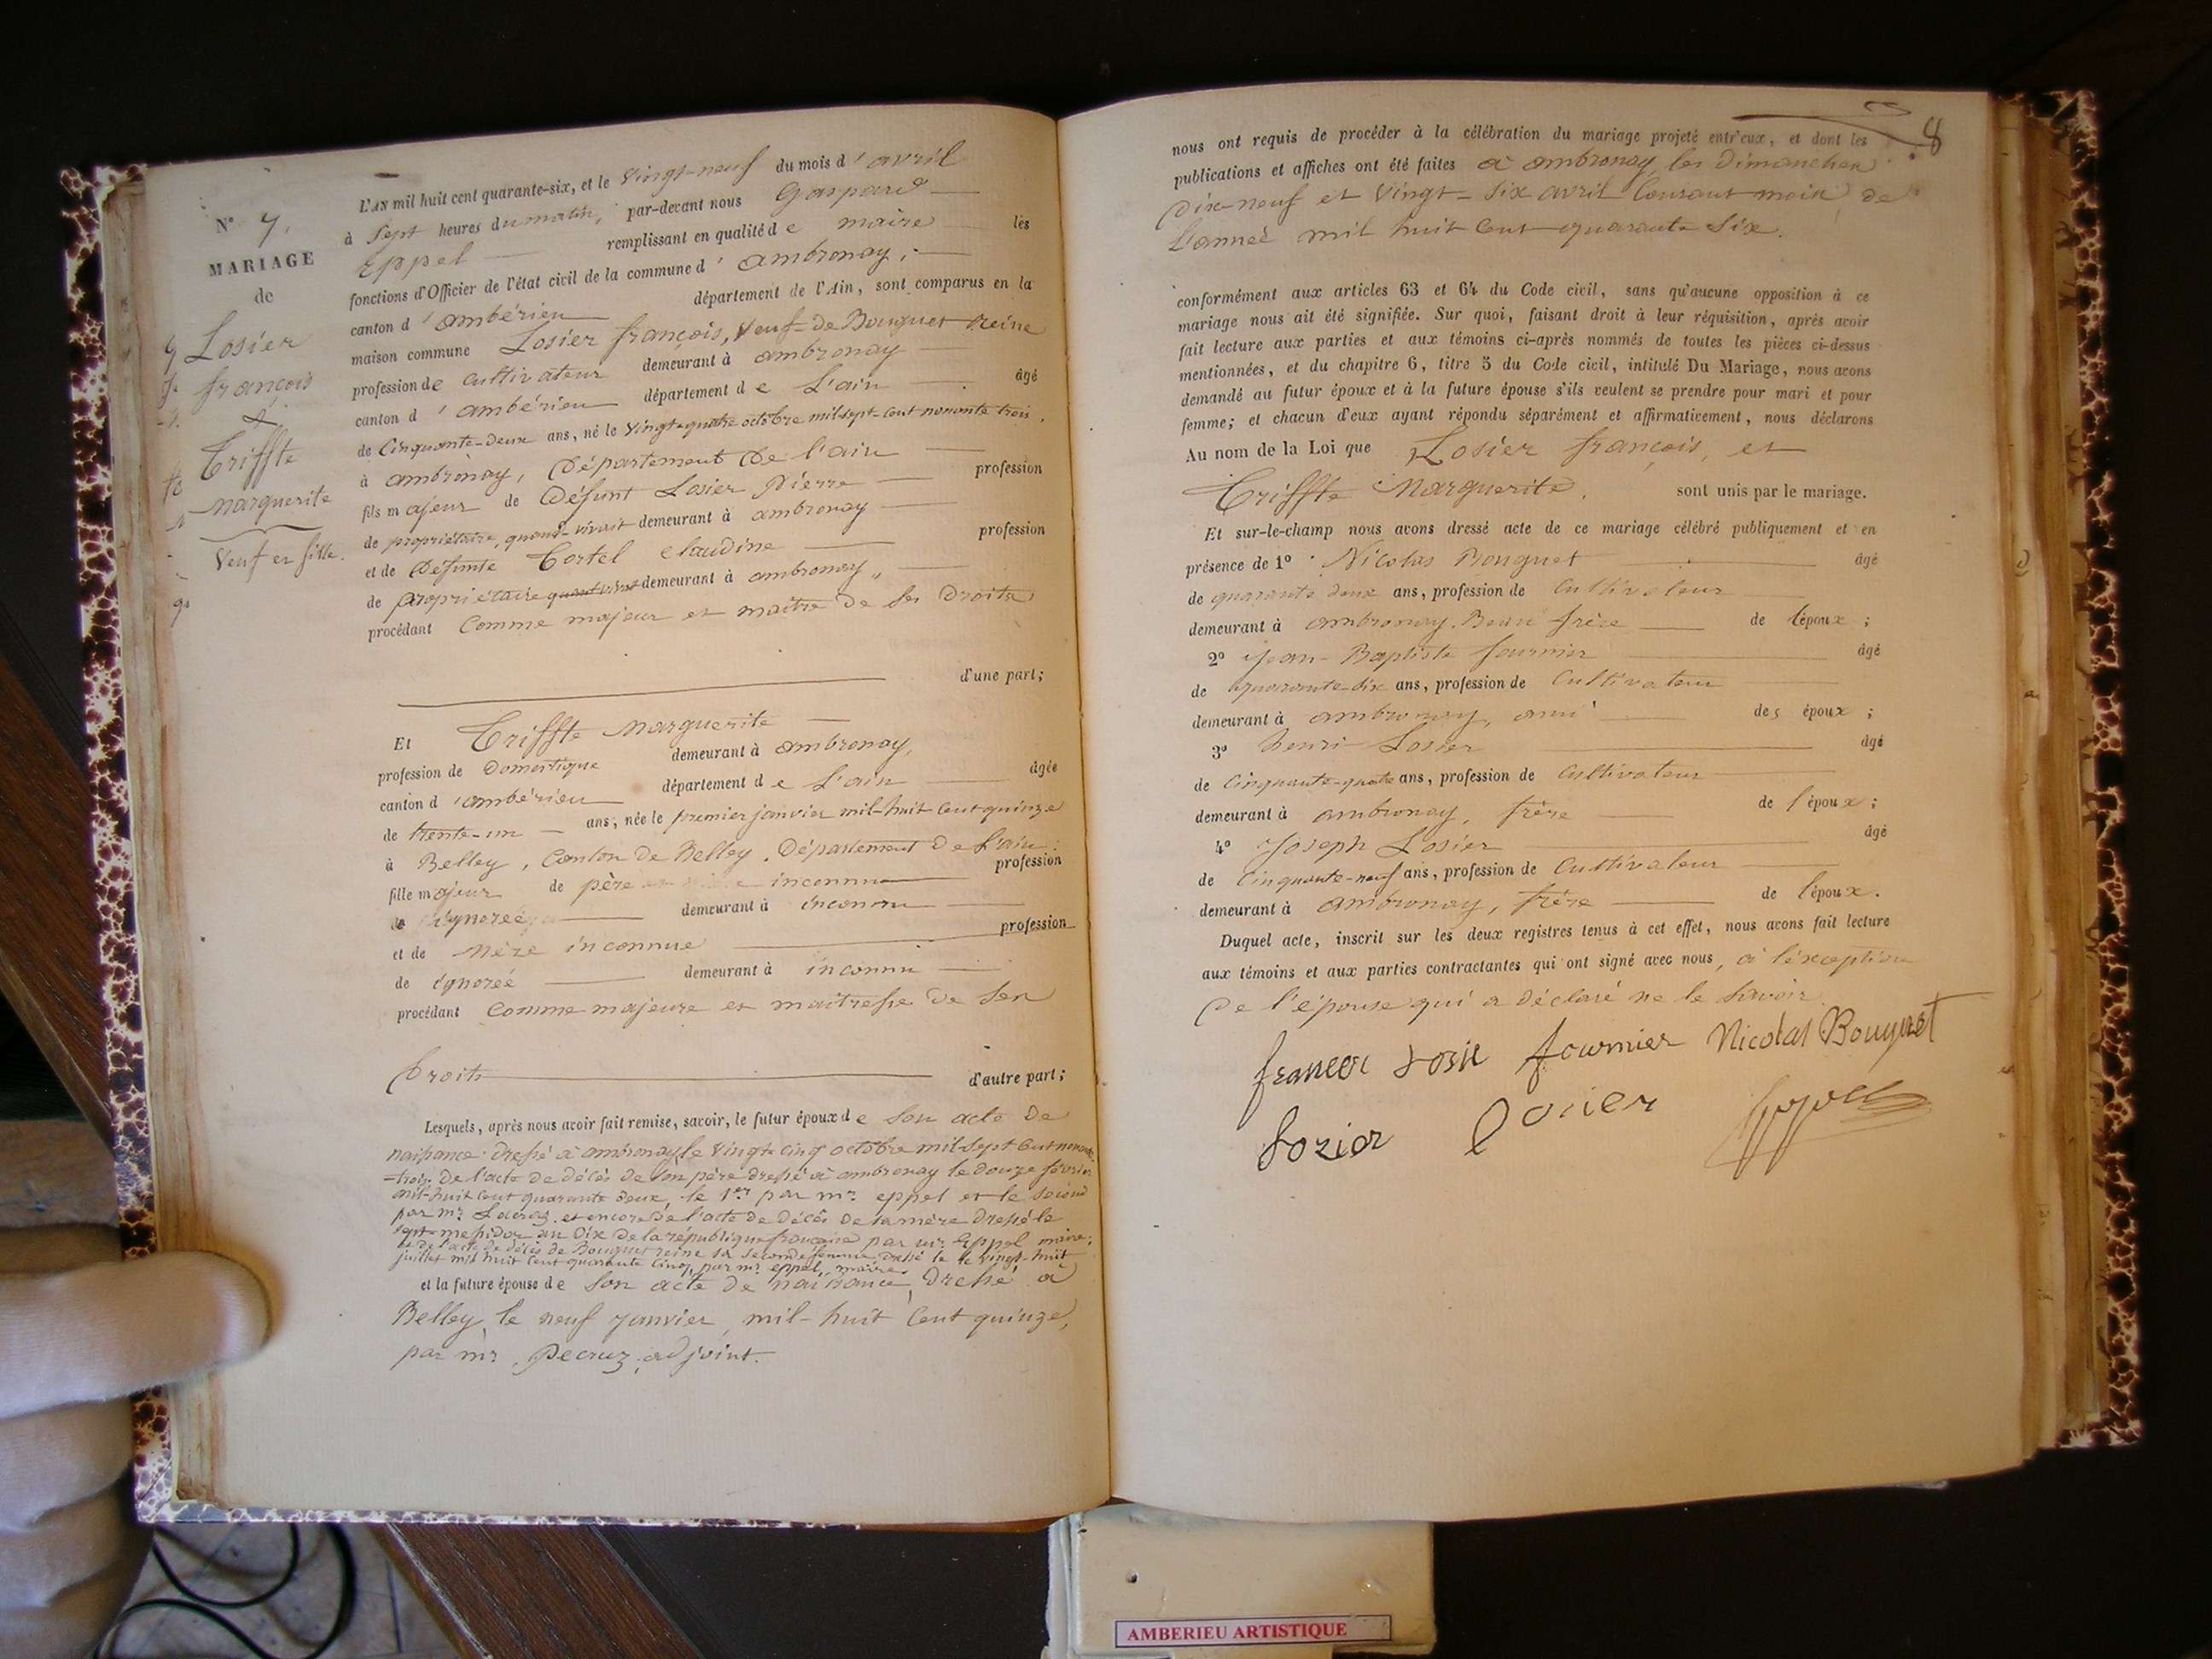 N° 7.
MARIAGE
de
Losier
françois
&
Triffte
Marguerite
Veuf et fille.
L'AN mil huit cent quarante-six, et le Vingt-neuf du mois d'avril
à Sept heures du matin, par-devant nous Gaspard
Eppel remplissant en qualité de maire les
fonctions d'Officier de l'état civil de la commune d'ambronay,
canton d'ambérieu département de l'Ain, sont comparus en la
maison commune Losier françois, Veuf de Bouguet Reine
profession de Cultivateur demeurant à ambronay
canton d'ambérieu département de L'ain âgé
de Cinquante-deux ans, né le Vingt-quatre octobre mil sept cent nonante trois,
à ambronay, Département De l'ain
fils majeur de Défunt Losier Pierre profession
de propriétaire, quand-vivait demeurant à ambronay
et de Défunte Tortel Claudine profession
de propriétaire quant vivait demeurant à ambronay
procédant Comme majeur et maître de Ses Droits
d'une part;
Et Triffte Marguerite
profession de Domestique demeurant à ambronay,
canton d'ambérieu département de L'ain âgée
de trente-un ans, née le premier janvier mil-huit cent quinze
à Belley, Canton de Belley, Département De L'ain.
fille majeur de père inconnu profession
de ignorée demeurant à inconnu
et de Mère inconnue profession
de ignoré demeurant à inconnu
procédant Comme majeure et maîtresse de Ses
Droits d'autre part;
Lesquels, après nous avoir fait remise, savoir, le futur époux de Son acte De
naissance Dressé à ambronay le Vingt cinq octobre mil Sept Cent nonante
-trois, De l'acte de décès de Son père dressé à ambronay le douze février
mil-huit Cent quarante deux, le 1er par mr. eppel et le Second
par mr. et encore De l'acte de décès De sa mère Dressé le
Sept messidor an Dix De la république française par mr. Eppel maire;
et de l'acte de décès de Bouguet reine sa seconde femme dressé le le vingt-huit
juillet mil huit Cent quarante Cinq, par mr. eppel, maire
et la future épouse de Son acte de naissance, Dressé à
Belley, le neuf janvier, mil-huit Cent quinze,
par mr. Decruz, adjoint.
8
nous ont requis de procéder à la célébration du mariage projeté entr'eux, et dont les
publications et affiches ont été faites à ambronay, les Dimanches
Dix-neuf et Vingt-Six avril Courant mois de
L'année mil huit Cent quarante Six.
conformément aux articles 63 et 64 du Code civil, sans qu'aucune opposition à ce
mariage nous ait été signifiée. Sur quoi, faisant droit à leur réquisition, après avoir
fait lecture aux parties et aux témoins ci-après nommés de toutes les pièces ci-dessus
mentionnées, et du chapitre 6, titre 5 du Code civil, intitulé Du Mariage, nous avons
demandé au futur époux et à la future épouse s'ils veulent se prendre pour mari et pour
femme; et chacun d'eux ayant répondu séparément et affirmativement, nous déclarons
Au nom de la Loi que Losier françois, et
Triffte Marguerite. sont unis par le mariage.
Et sur-le-champ nous avons dressé acte de ce mariage célébré publiquement et en
présence de 1° Nicolas Bouguet âgé
de quarante deux ans, profession de Cultivateur
demeurant à ambronay, Beau frère de l'époux;
2° Jean-Baptiste fournier âgé
de quarante-six ans, profession de Cultivateur
demeurant à ambronay, ami des époux;
3° henri Losier âgé
de Cinquante-quatre ans, profession de Cultivateur
demeurant à ambronay, frère de l'époux;
4° Joseph Losier âgé
de Cinquante-neuf ans, profession de Cultivateur
demeurant à ambronay, frère de l'époux.
Duquel acte, inscrit sur les deux registres tenus à cet effet, nous avons fait lecture
aux témoins et aux parties contractantes qui ont signé avec nous, à l'exception
De l'épouse qui a déclaré ne le Savoir.
fournier Nicolas Bouguet
Lozier Losier
AMBERIEU ARTISTIQUE